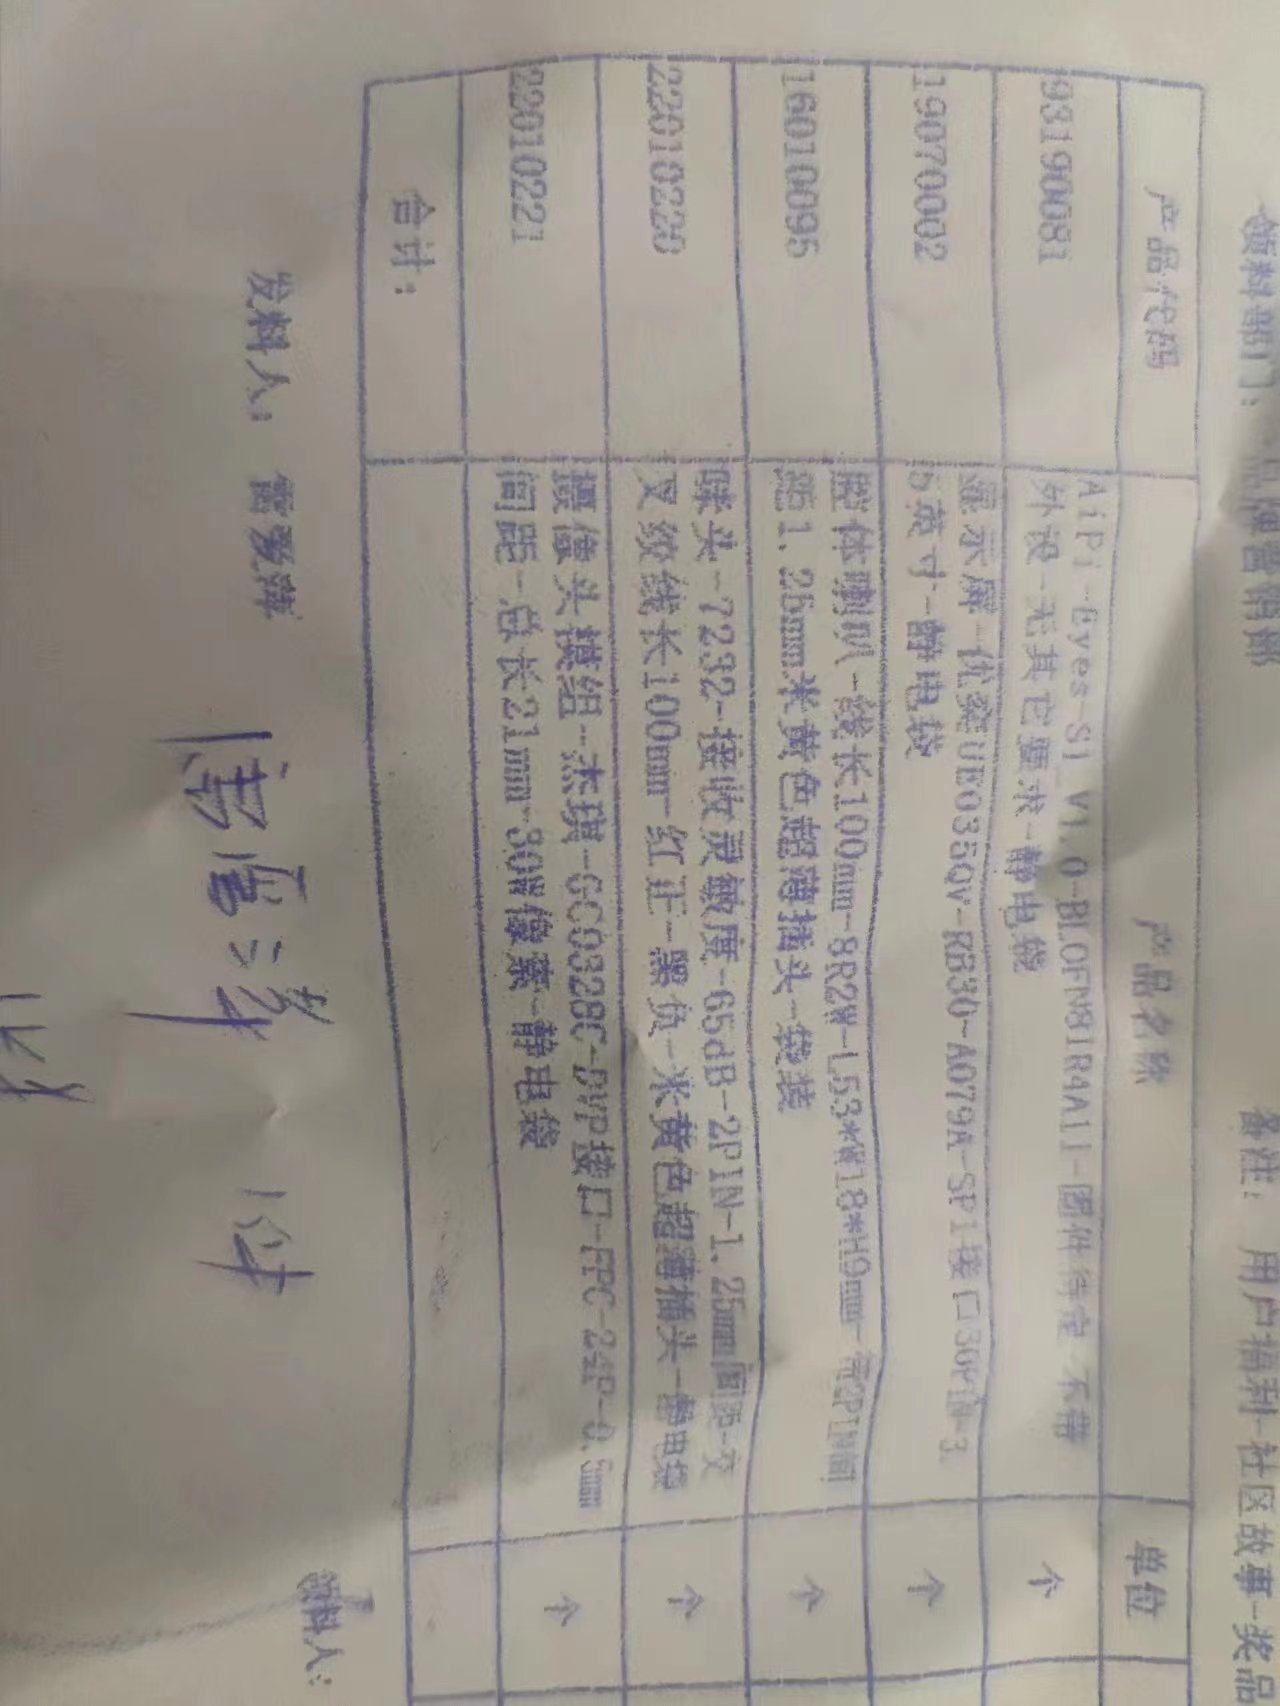 领料部门：品牌营销部 备注：用户福利-社区故事-奖品
产品代码 产品名称 单位
93190081 AiPi-Eyes-S1_V1.0-BLOFN8IR4A11-固件待定 不带
外设-无其它要求-静电袋 个
19070002 显示屏-优奕UE035QV-RB30-A079A-SPI接口30PIN-3.
5英寸-静电袋 个
16010095 腔体喇叭-线长100mm-8R2W-L53*W18*H9mm-带2PIN间
距1.25mm米黄色超薄插头-袋装 个
22010220 咪头-7232-接收灵敏度-65dB-2PIN-1.25mm间距-交
叉绞线长100mm-红正-黑负-米黄色超薄插头-静电袋 个
22010221 摄像头模组-杰琪-GC0328C-DVP接口-FPC-24P-0.5mm
间距-总长21mm-30W像素-静电袋 个
合计：
发料人： 领料人：